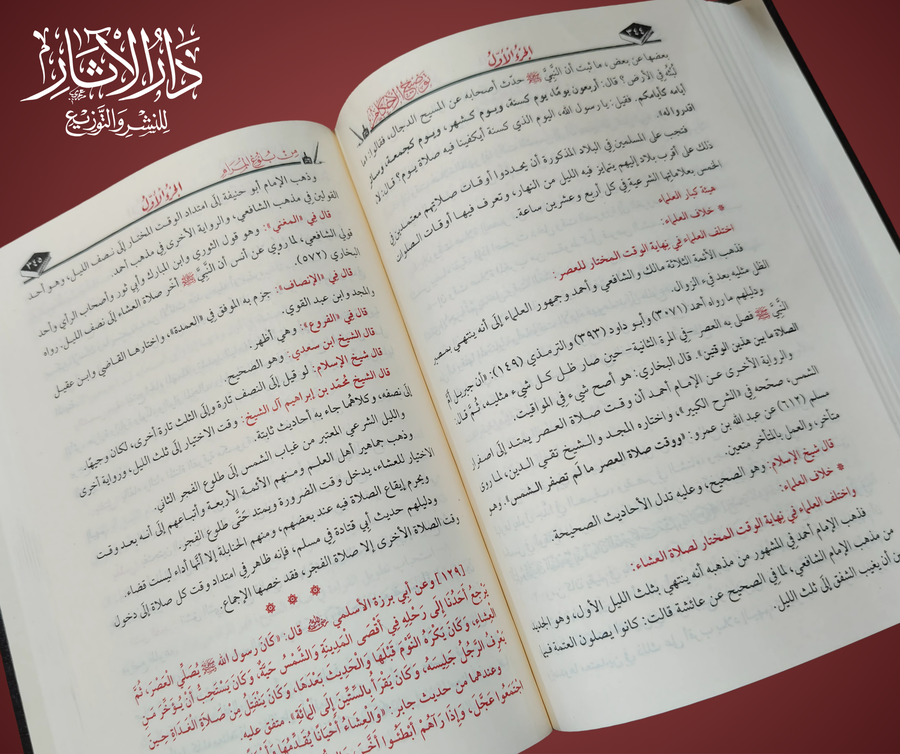 دار الآثار
للنشر والتوزيع
٣٤٤
الجزء الأول
توضيح الأحكام
بعضها عن بعض، ما ثبت أن النَّبِيَّ ﷺ حدّث أصحابه عن المسيح الدجال، فقالوا:
لُبْثُهُ في الأرض؟ قال: أربعون يومًا، يوم كسنة، ويوم كشهر، ويوم كجمعة، وسائر
أيامه كأيامكم. فقيل: يا رسول الله، اليوم الذي كسنة أيكفينا فيه صلاة يوم؟ قال: لا،
اقدروا له».
فتجب على المسلمين في البلاد المذكورة أن يحددوا أوقات صلاتهم معتمدين في
ذلك على أقرب بلاد إليهم يتمايز فيه الليل من النهار، وتعرف فيها أوقات الصلوات
الخمس بعلاماتها الشرعية في كل أربع وعشرين ساعة.
هيئة كبار العلماء
* خلاف العلماء:
اختلف العلماء في نهاية الوقت المختار للعصر:
فذهب الأئمة الثلاثة مالك والشافعي وأحمد وجمهور العلماء إلى أنه ينتهي بمصير
الظل مثليه بعد فيء الزوال.
ودليلهم ما رواه أحمد (٣٠٧١) وأبو داود (٣٩٣) والترمذي (١٤٩): «أن جبريل أمَّ
النَّبِيَّ ﷺ فصل به العصر -في المرة الثانية- حين صار ظل كل شيء مثليه، ثُمَّ قال:
الصلاة ما بين هذين الوقتين». قال البخاري: هو أصح شيء في المواقيت.
والرواية الأخرى عن الإمام أحمد أن وقت صلاة العصر يمتد إلى اصفرار
الشمس، صححه في «الشرح الكبير»، واختاره المجد والشيخ تقي الدين، لما روى
مسلم (٦١٢) عن عبد الله بن عمرو: «ووقت صلاة العصر ما لَم تصفر الشمس». وهو
متأخر، والعمل بالمتأخر متعين.
قال شيخ الإسلام: وهو الصحيح، وعليه تدل الأحاديث الصحيحة.
* خلاف العلماء:
واختلف العلماء في نهاية الوقت المختار لصلاة العشاء:
فذهب الإمام أحمد في المشهور من مذهبه أنه ينتهي بثلث الليل الأول، وهو الجديد
من مذهب الإمام الشافعي، لما في الصحيح عن عائشة قالت: كانوا يصلون العتمة فيما
بين أن يغيب الشفق إلى ثلث الليل.
من بلوغ المرام
الجزء الأول
٣٤٥
وذهب الإمام أبو حنيفة إلى امتداد الوقت المختار إلى نصف الليل، وهو أحد
القولين في مذهب الشافعي، والرواية الأخرى في مذهب أحمد.
قال في «المغني»: وهو قول الثوري وابن المبارك وأبي ثور وأصحاب الرأي وأحد
قولي الشافعي، لما روي عن أنس أن النَّبِيَّ ﷺ أخر صلاة العشاء إلى نصف الليل. رواه
البخاري (٥٧٢).
قال في «الإنصاف»: جزم به الموفق في «العمدة»، واختارها القاضي وابن عقيل
والمجد وابن عبد القوي.
قال في «الفروع»: وهي أظهر.
قال الشيخ ابن سعدي: وهو الصحيح.
قال شيخ الإسلام: لو قيل إلى النصف تارة وإلى الثلث تارة أخرى، لكان وجيهًا.
قال الشيخ مُحمَّد بن إبراهيم آل الشيخ: وقت الاختيار إلى ثلث الليل، ورواية أخرى
إلى نصفه، وكلاهما جاء به أحاديث ثابتة.
والليل الشرعي المعتبر من غياب الشمس إلى طلوع الفجر الثاني.
وذهب جماهير أهل العلم ومنهم الأئمة الأربعة وأتباعهم إلى أنه بعد وقت
الاختيار للعشاء، يدخل وقت الضرورة ويمتد حَتَّى طلوع الفجر.
ويحرم إيقاع الصلاة فيه عند بعضهم، ومنهم الحنابلة إلا أنَّها أداء ليست قضاء.
ودليلهم حديث أبي قتادة في مسلم، فإنه ظاهر في امتداد وقت كل صلاة إلى دخول
وقت الصلاة الأخرى إلا صلاة الفجر، فقد خصها الإجماع.
[١٢٩] وعن أبي برزة الأسلمي قال: «كَانَ رسول الله ﷺ يُصَلِّي الْعَصْرَ، ثُمَّ
يَرْجِعُ أَحَدُنَا إِلَى رَحْلِهِ فِي أَقْصَى الْمَدِينَةِ وَالشَّمْسُ حَيَّةٌ، وَكَانَ يَسْتَحِبُّ أَنْ يُؤَخِّرَ مِنَ
الْعِشَاءِ، وَكَانَ يَكْرَهُ النَّوْمَ قَبْلَهَا وَالْحَدِيثَ بَعْدَهَا، وَكَانَ يَنْفَتِلُ مِنْ صَلَاةِ الْغَدَاةِ حِينَ
يَعْرِفُ الرَّجُلُ جَلِيسَهُ، وَكَانَ يَقْرَأُ بِالسِّتِّينَ إِلَى الْمِائَةِ». متفق عليه.
وعندهما من حديث جابر: «وَالْعِشَاءُ أَحْيَانًا يُقَدِّمُهَا
اجْتَمَعُوا عَجَّلَ، وَإِذَا رَآهُمْ أَبْطَئُوا أَخَّرَ